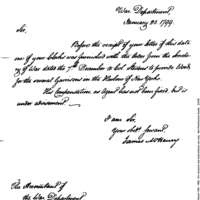 War Department,
January 25. 1799.
Sir,
Before the receipt of your letter of this date
one of your Clerks was furnished with the letter from the Secretary
of War dated the 7th December to Col. Stevens to provide Wood
for the several Garrisons in the Harbour of New York.
The Compensation as Agent has not been fixed but is
under advisement.
I am Sir,
Your obed. servant,
James McHenry
The Accountant of
the War Department